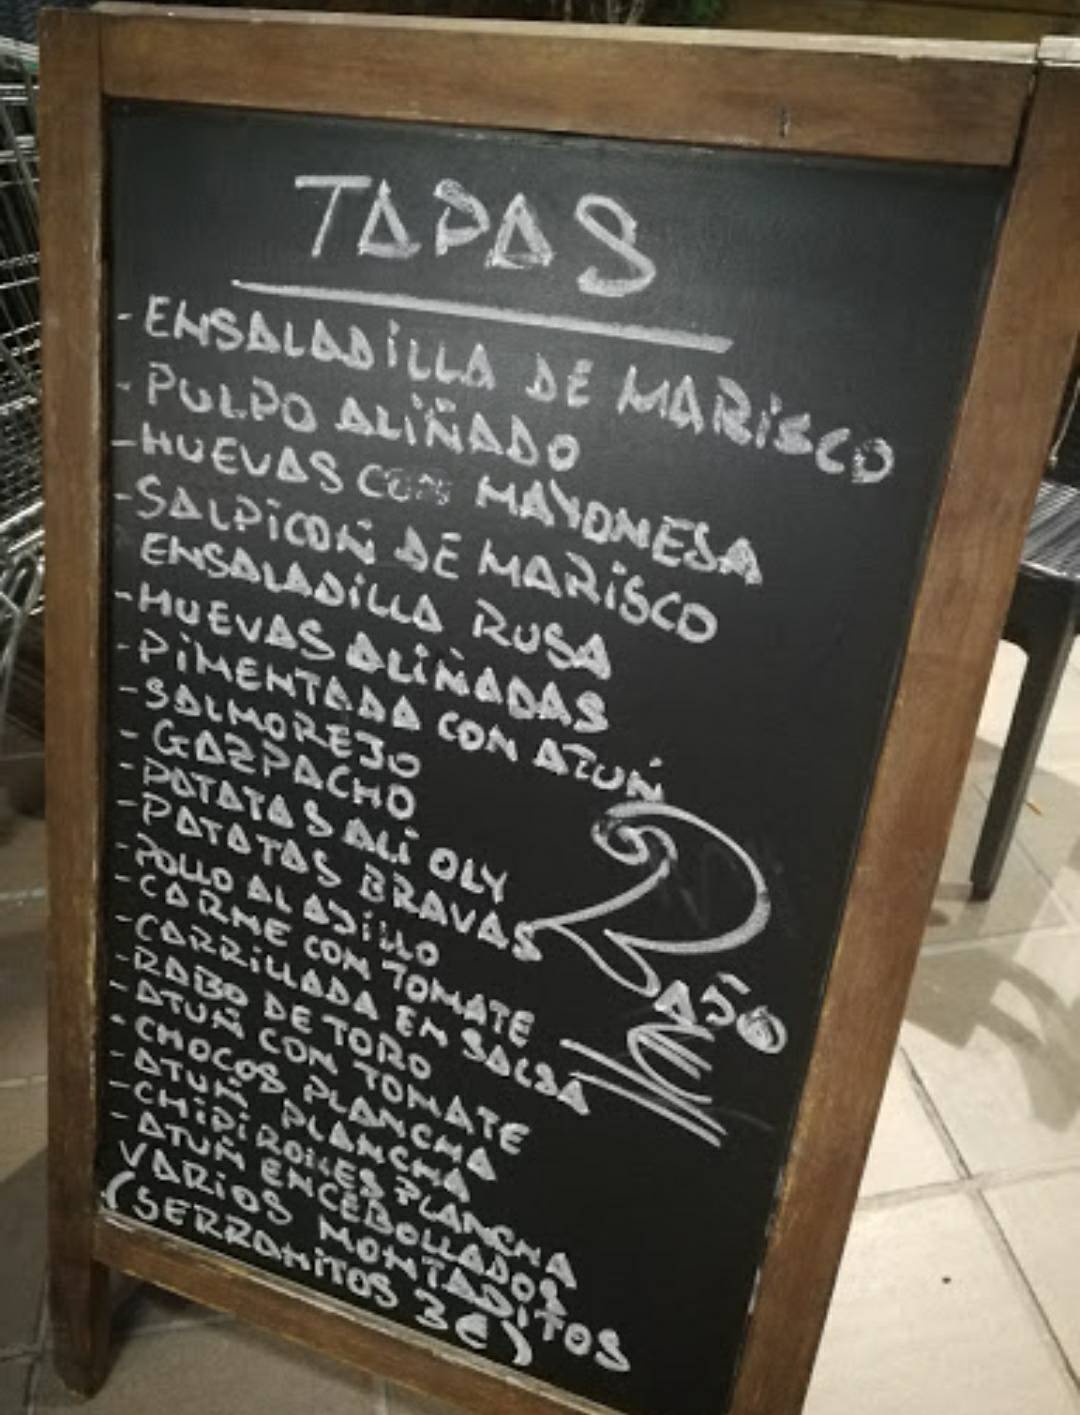 TAPAS
- ENSALADiLLA DE MARiSCO
- PULPO ALiÑADO
- HUEVAS CON MAYONESA
- SALPiCOÑ DE MARiSCO
ENSALADiLLA RUSA
- HUEVAS ALiÑADAS
- PiMENTADA CON ATUÑ
- SALMOREJO
- GAZPACHO
- PATATAS ALi OLY
- PATATAS BRAVAS
- POLLO AL AJiLLO
- CARNE CON TOMATE
- CARRiLLADA EN SALSA
- RABO DE TORO
- ATUÑ CON TOMATE
- CHOCOS PLANCHA
- ATUÑ PLANCHA
- CHiPiRONES PLANCHA
- ATUÑ ENCEBOLLADOS
VARiOS MONTADiTOS
(SERRANiTOS 3€)